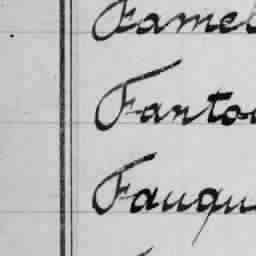 Famel
Fanto
Fauqu